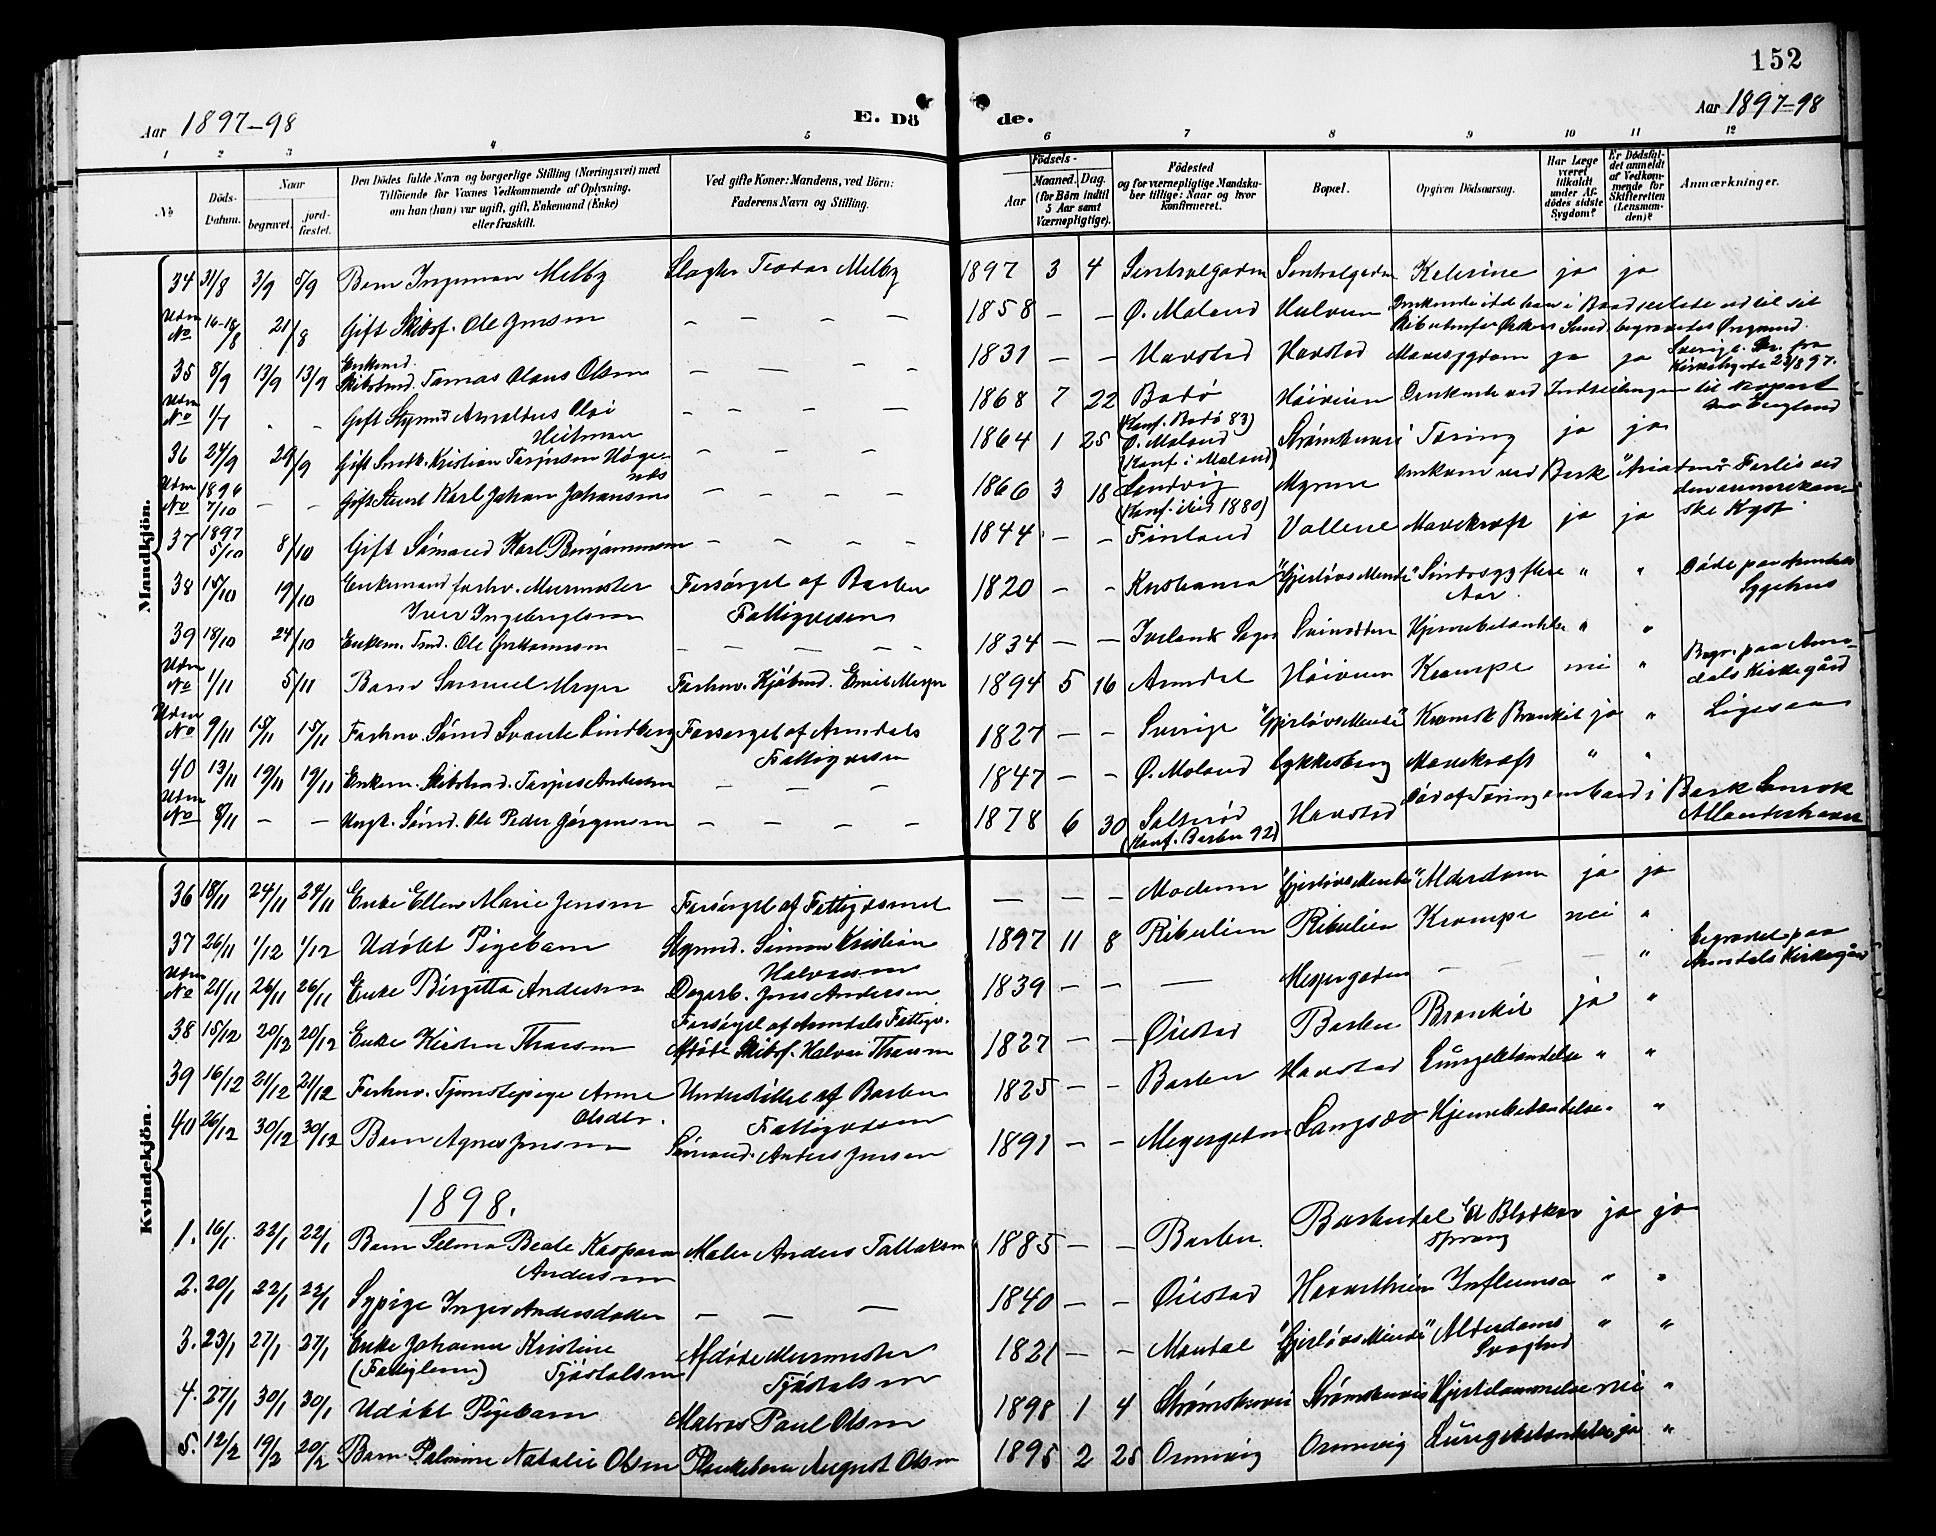 152
Aar 1897-98
E. Dö
de.
Aar 1897-98
1 2 3 4 5 6 7 8 9 10 11 12
No
Döds-Datum.
Naar
begravet.
jord-fæstet.
Den Dödes fulde Navn og borgerlige Stilling (Næringsvei) med
Tilföiende for Voxnes Vedkommende af Oplysning,
om han (hun) var ugift, gift, Enkemand (Enke)
eller fraskilt.
Ved gifte Koner: Mandens, ved Börn:
Faderens Navn og Stilling.
Födsels-
Aar
Maaned. Dag.
(for Börn indtil
5 Aar samt
Værnepligtige).
Födested
og for værnepligtige Mandska-
ber tillige: Naar og hvor
konfirmeret.
Bopæl.
Opgiven Dödsaarsag.
Har Læge
været
tilkaldt
under Af-
dödes sidste
Sygdom?
Er Dödsfal-
det anmeldt
af Vedkom-
mende for
Skifteretten
(Lensman-
den)?
Anmærkninger.
Mandkjön.
34 31/8 3/9 5/9 Barn Ingeman Melby Slagter Teodor Melby 1897 3 4 Sentralgaden Sentralgaden Kolerine ja ja
Uden No 16-18/8 21/8 Gift Skibsf. Ole Jensen – – – – 1858 – – Ø. Moland
35 8/9 13/9 13/9 Enkemd. Skibstmd. Tomas Olaus Olsen – – – – 1831 – – Havstad Havstad Mavesygdom ja ja
Uden No 1/7 - - Gift Styrmd Arnoldus Olai Heitman – – – – 1868 7 22 Bodø (Konf. Bodø 83) Høiveien Druknede ved Indseilingen til England
36 24/9 29/9 Gift Snedk. Kristian – – – – 1864 1 25 Ø. Moland (Konf. i Moland) Tæring ja ja
Uden No 1896 7/10 – – Gift Stuert Karl Johan Johansen – – – – 1866 3 18 Sandvig (Konf. ibid 1880) Myrene Omkom ved Bark Forlis ved den amerikanske Kyst
37 1897 5/10 8/10 Gift Sømand Karl Benjaminsen – – – – 1844 – – Finland Vollene Mavekræft ja ja
38 15/10 19/10 Enkemand forhv. Murmester Iver Ingebrigtsen Forsørget af Barbu Fattigvesen 1820 – – Kristiania "Gjerløvs Minde" " " Døde paa Arendals Sygehus
39 18/10 24/10 Enkem. Tmd. Ole – – – – 1834 – – Iveland " "
Uden No 1/11 5/11 Barn Samuel Meyer Forhnv. Kjøbmd. Emil Meyer 1894 5 16 Arendal Høiveien Krampe nei " Begr. paa Arendals Kirkegård
Uden No 9/11 15/11 15/11 Forhnv. Sømd Svante Lindberg Forsørget af Arendals Fattigvesen 1827 – – Sverige "Gjerløvs Minde" Kronisk Bronkit ja " Ligesaa
40 13/11 19/11 19/11 Enkem. Skibstmd. Torjus Andersen – – – – 1847 – – Ø. Moland Lykkesborg Mavekræft " "
Uden No 8/11 – – Ungk. Sømd. Ole Peder Jørgensen – – – – 1878 6 30 Salterød (Konf. Barbu 92) Havstad Død af Tæring ombord i Bark Atlanterhavet
Kvindekjön.
36 18/11 24/11 24/11 Enke Ellen Marie Jensen Forsørget af Fattigvesnet – – – Modum "Gjerløvs Minde" Alderdom ja ja
37 26/11 1/12 1/12 Udøbt Pigebarn Styrmd. Simon Kristian Halvorsen 1897 11 8 Ribulien Ribulien Krampe nei "
Uden No 21/11 26/11 26/11 Enke Birgitta Andersen Dagarb. Jens Andersen 1839 – – – – – – " begravet paa Arendals Kirkegård
38 15/12 20/12 20/12 Enke Kirsten Thorsen Forsørget af Arendals Fattigv. Afdøde Skibsf. Halvor Thorsen 1827 – – Øiestad Barbu Bronkit ja "
39 16/12 21/12 21/12 Forhnv. Tjenestepige Anne Olsdtr. Understøttet af Barbu Fattigvesen 1825 – – Barbu Havstad Lungebetændelse " "
40 26/12 30/12 30/12 Barn Agnes Jensen Sømand. Anders Jensen 1891 – – Langsæ Hjernebetændelse " "
1898.
1. 16/1 22/1 22/1 Barn Selma Beate Kaspara Andersen Maler Anders Tallaksen 1885 – – Barbu Barbudal Et Blodkar sprang ja ja
2. 20/1 22/1 22/1 Sypige Inger Andersdatter – – – 1840 – – Øiestad Influensa " "
3. 23/1 27/1 27/1 Enke Johanne Kristine Tjøstolsen (Fattiglem) Afdøde Murmester Tjøstolsen 1821 – – Mandal "Gjerløvs Minde" Alderdoms Svaghed " "
4. 27/1 30/1 30/1 Udøbt Pigebarn Matros Paul Olsen 1898 1 4 Strømsbuvei Strømsbuvei Hjertelammelse nei "
5. 12/2 19/2 20/2 Barn Palmine Natalie Olsen Plankebærer August Olsen 1895 2 25 Omvig Omvig Lungebetændelse ja "